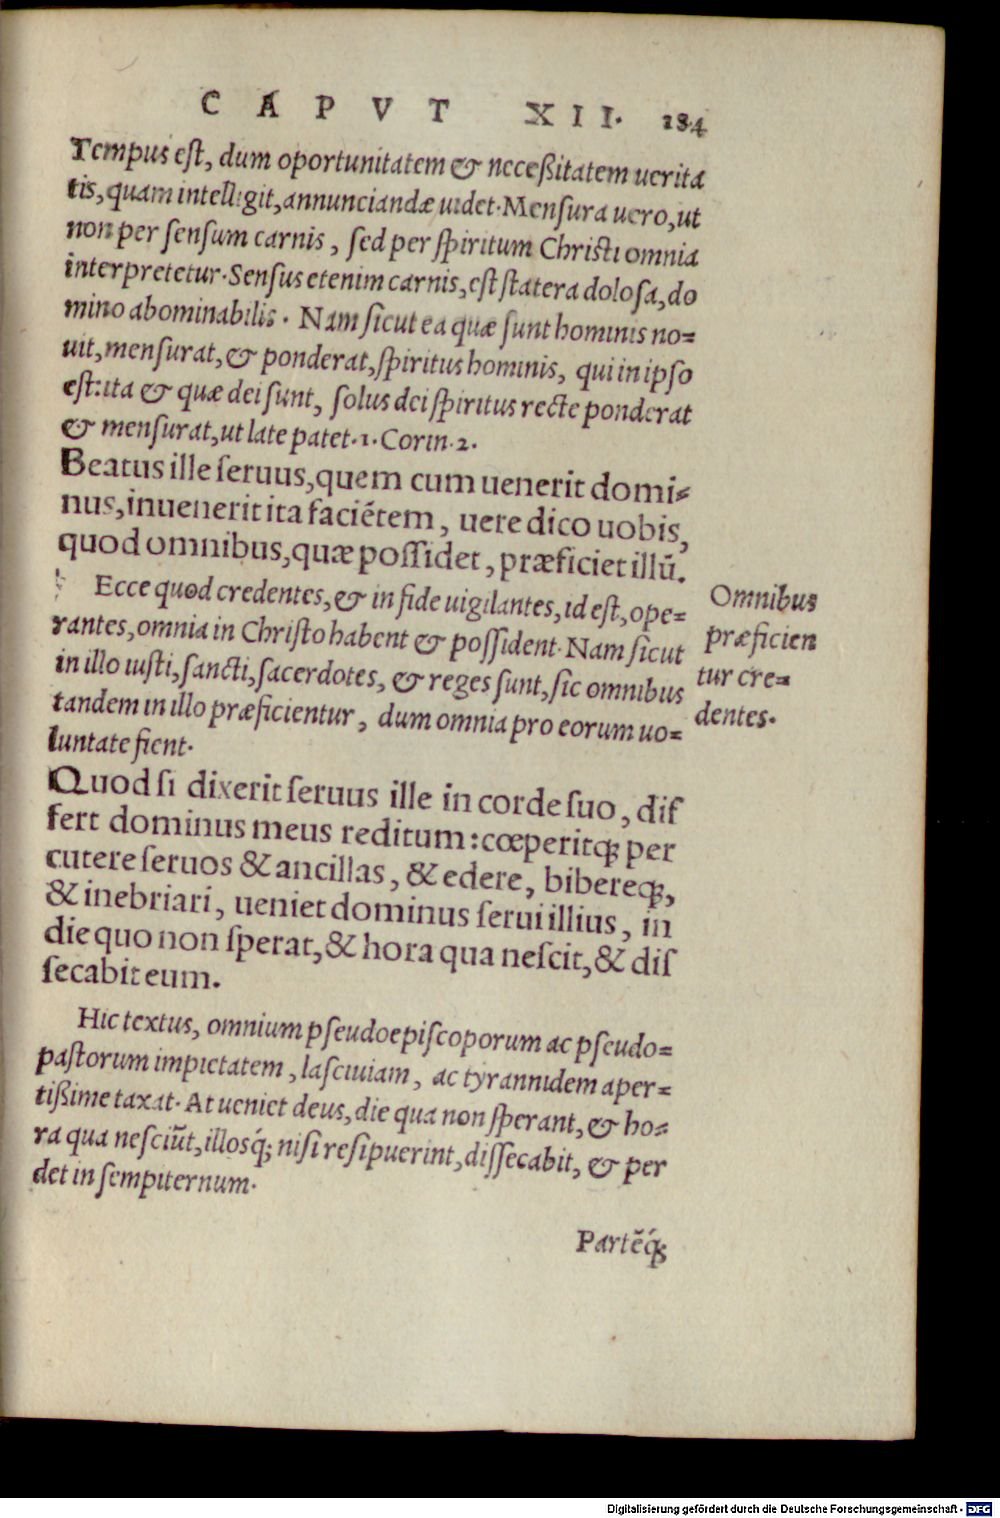 CAPVT XII. 184
Tempus est, dum oportunitatem & neceßitatem uerita
tis, quam intelligit, annunciandæ uidet. Mensura uero, ut
non per sensum carnis, sed per spiritum Christi omnia
interpretetur. Sensus etenim carnis, est statera dolosa, do
mino abominabilis. Nam sicut ea quæ sunt hominis no=
uit, mensurat, & ponderat, spiritus hominis, qui in ipso
est: ita & quæ dei sunt, solus dei spiritus recte ponderat
& mensurat, ut late patet. 1. Corin. 2.
Beatus ille seruus, quem cum uenerit domi=
nus, inuenerit ita faciẽtem, uere dico uobis,
quod omnibus, quæ possidet, præficiet illũ.
Ecce quod credentes, & in fide uigilantes, id est, ope=
rantes, omnia in Christo habent & possident. Nam sicut
in illo iusti, sancti, sacerdotes, & reges sunt, sic omnibus
tandem in illo præficientur, dum omnia pro eorum uo=
luntate fient.
Omnibus
præficien
tur cre=
dentes.
Quod si dixerit seruus ille in corde suo, dif
fert dominus meus reditum: cœperitq; per
cutere seruos & ancillas, & edere, bibereq;,
& inebriari, ueniet dominus serui illius, in
die quo non sperat, & hora qua nescit, & dis
secabit eum.
Hic textus, omnium pseudoepiscoporum ac pseudo=
pastorum impietatem, lasciuiam, ac tyrannidem aper=
tißime taxat. At ueniet deus, die qua non sperant, & ho=
ra qua nesciũt, illosq́; nisi resipuerint, dissecabit, & per
det in sempiternum.
Partẽq́;
Digitalisierung gefördert durch die Deutsche Forschungsgemeinschaft - DFG